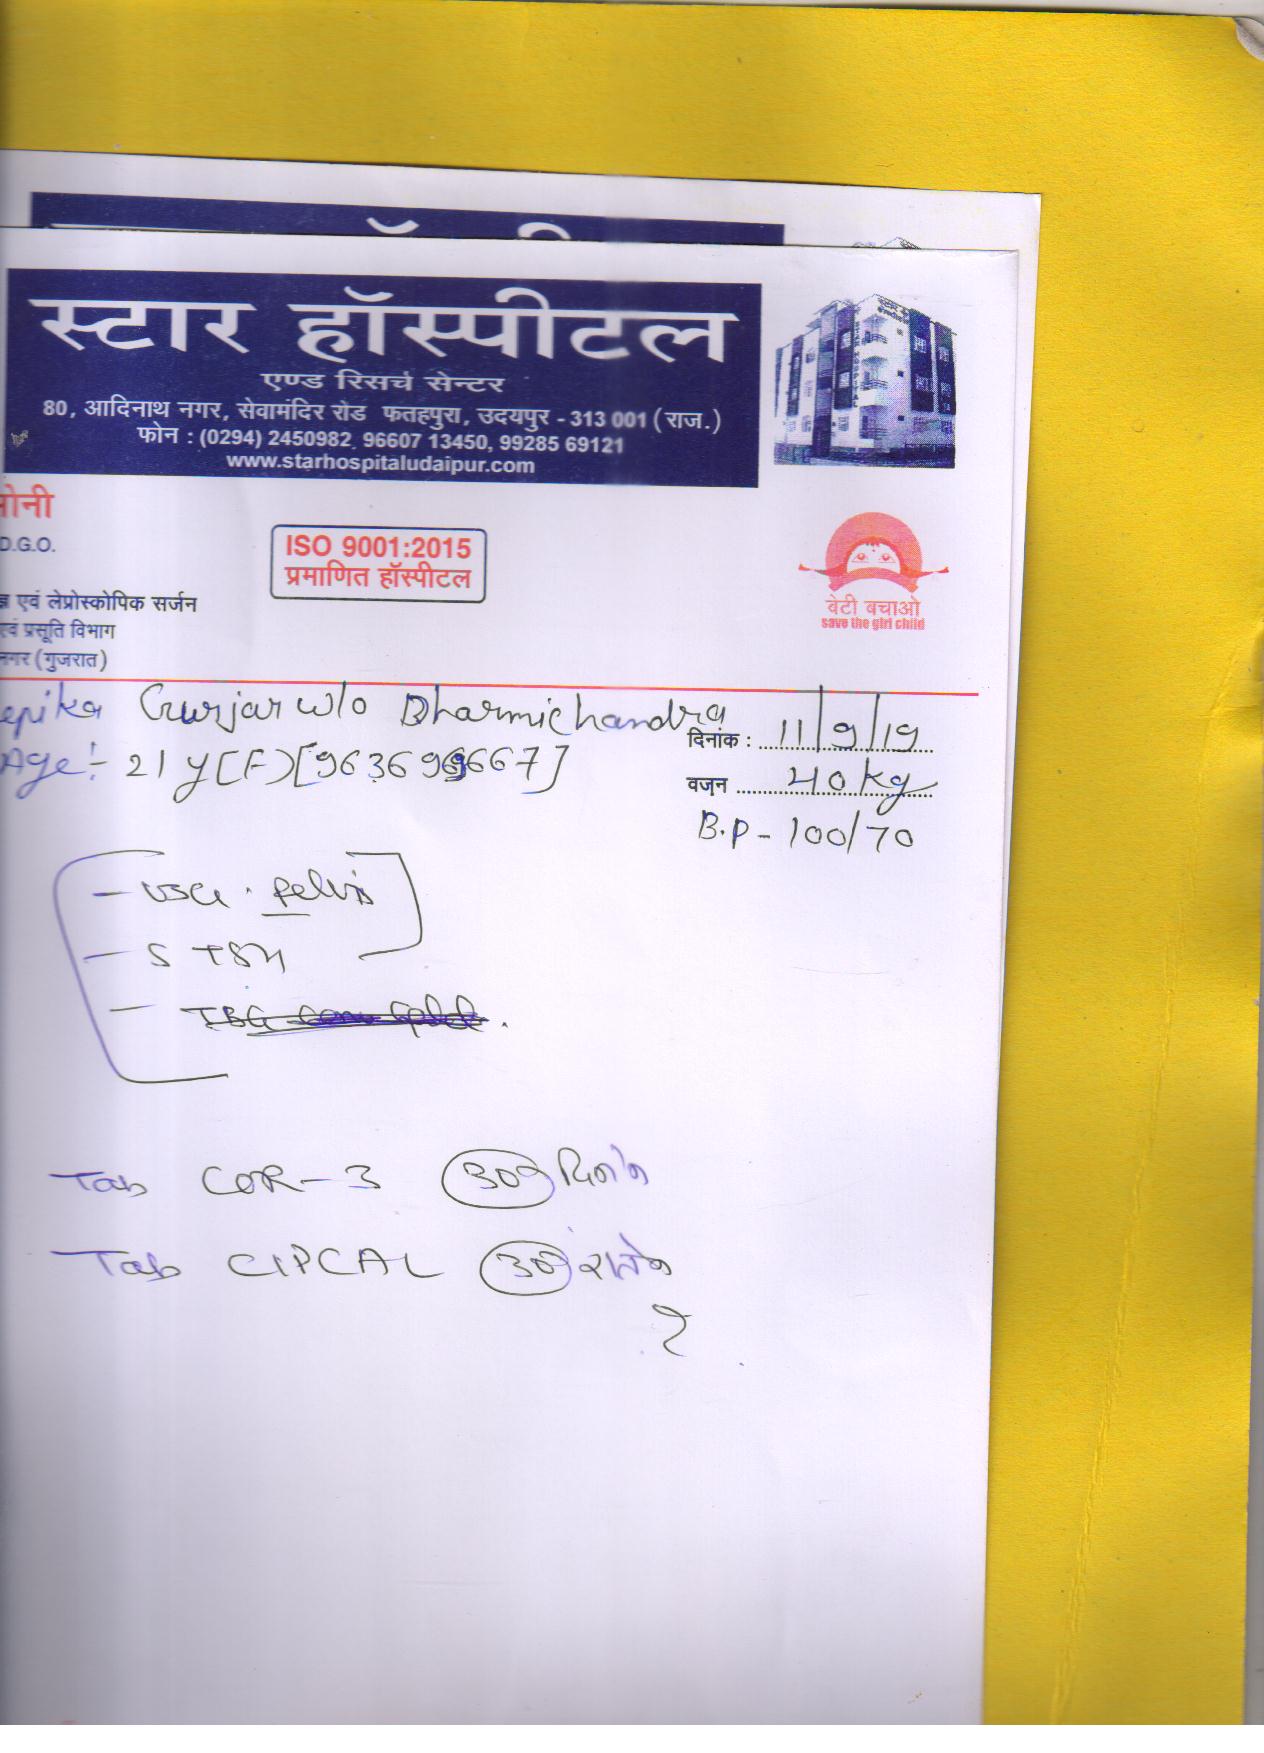 स्टार हॉस्पीटल
एण्ड रिसर्च सेन्टर
80, आदिनाथ नगर, सेवामंदिर रोड फतहपुरा, उदयपुर - 313 001 (राज.)
फोन : (0294) 2450982, 96607 13450, 99285 69121
www.starhospitaludaipur.com
सोनी
D.G.O.
ISO 9001:2015
प्रमाणित हॉस्पीटल
बेटी बचाओ
save the girl child
एवं लेप्रोस्कोपिक सर्जन
एवं प्रसूति विभाग
नगर (गुजरात)
epika Gurjar w/o Dharmichandra
दिनांक : 11/9/19
Age:- 21 y (F)
वजन 40 kg
B.P - 100/70
- USG. Pelvis
- S TSH
Tab COR-3 30 दिन में
Tab CIPCAL 30 रात में